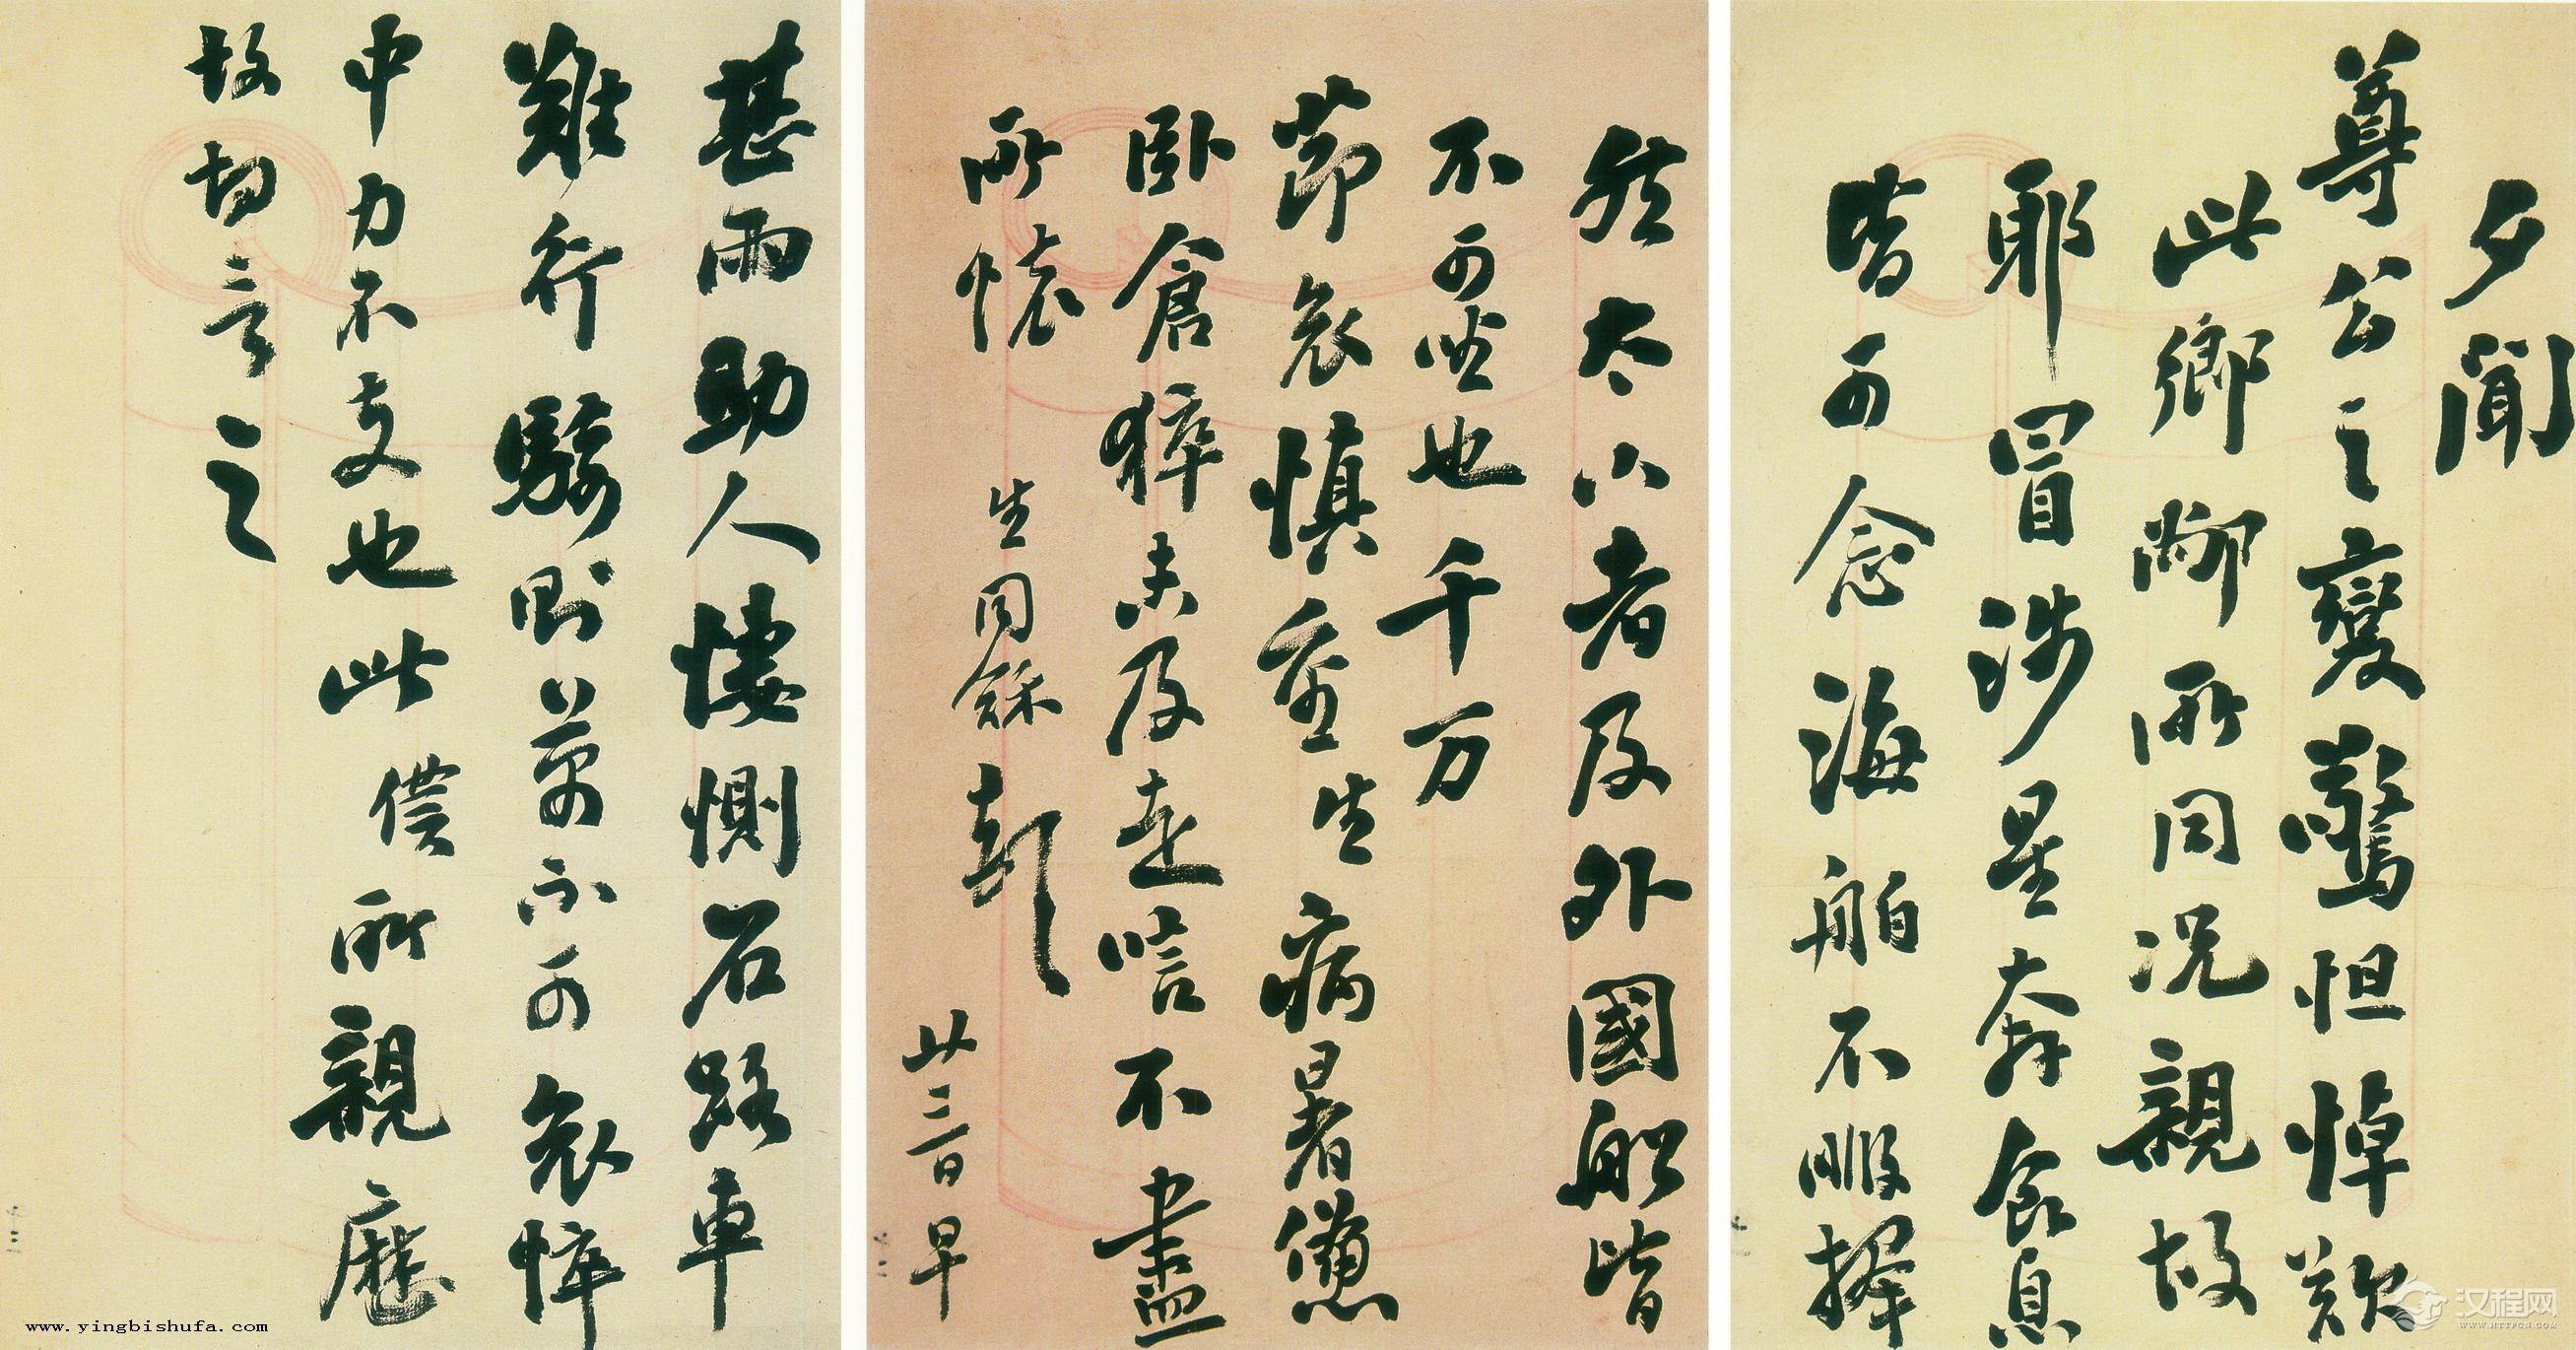 夕聞
尊公之變驚怛悼歎
此鄉鄰所同況親故
耶冒涉星奔食息
皆可念海舶不暇擇
然太小者及外國船皆
不可坐也千万
節哀慎重生病暑憊
臥倉猝未及走唁不盡
所懷
生同龢頓
廿三日早
甚雨助人悽惻石路車
難行騾則萬不可哀悴
中力不支也此僕所親歷
故切言之
www.yingbishufa.com
汉程网
WWW.HTTPCN.COM